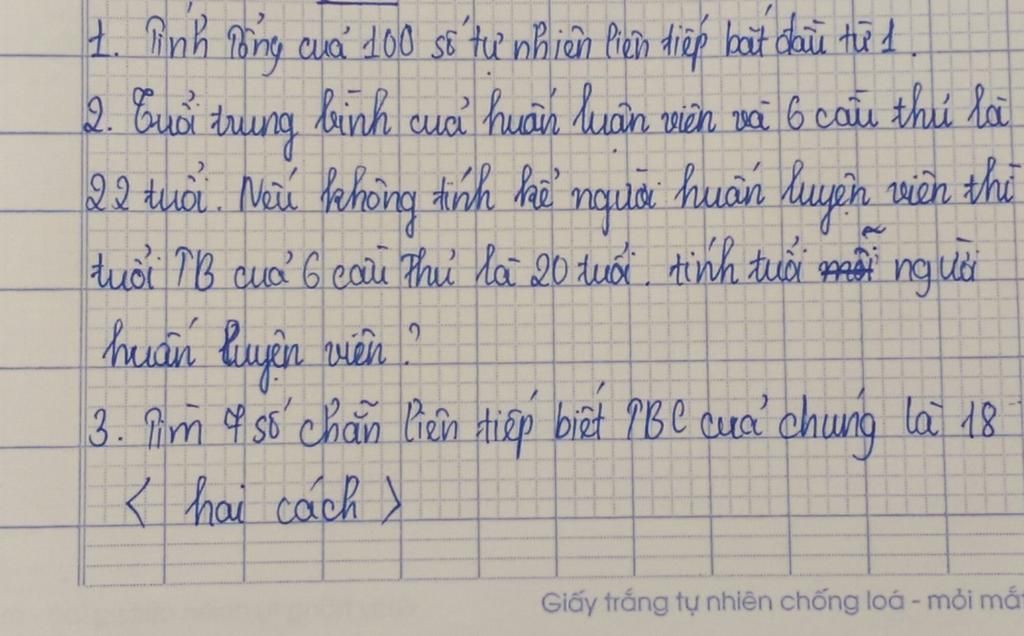 1. Tính tổng cuả 100 số tự nhiên liên tiếp bắt đầu từ 1.
2. Tuổi trung bình cuả huấn luân viên và 6 cầu thủ là
22 tuổi. Nếu không tính kể người huấn luyện viên thì
tuổi TB cuả 6 cầu thủ là 20 tuổi. tính tuổi người
huấn luyện viên?
3. Tìm 4 số chẵn liên tiếp biết TBC cuả chúng là 18
< hai cách >
Giấy trắng tự nhiên chống loá - mỏi mắ